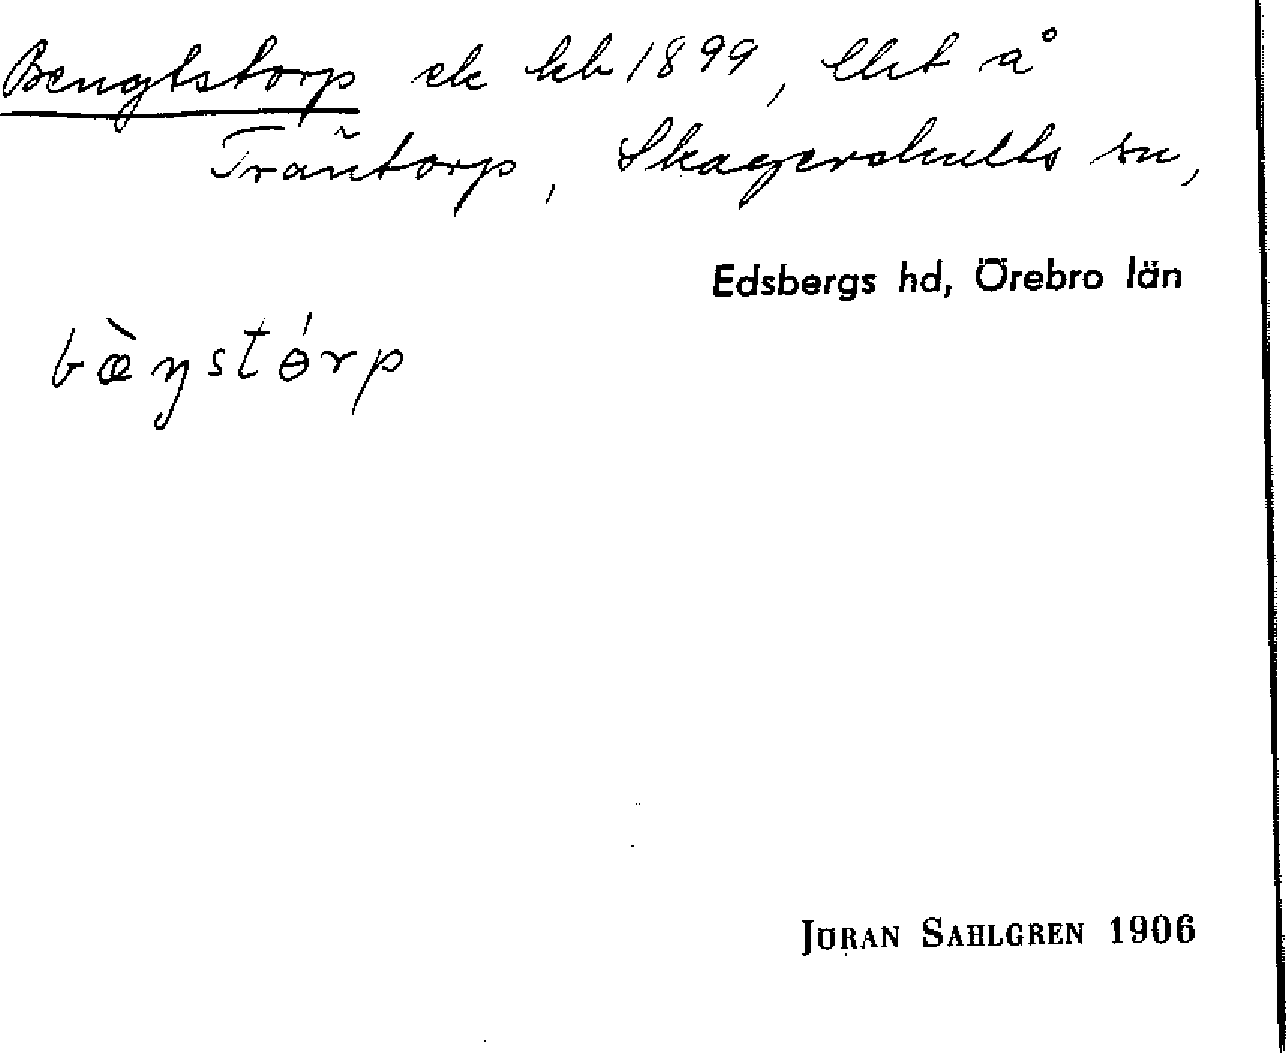 Bengtstorp ek kb 1899, lht å
Trantorp, Skagershults sn,
Edsbergs hd, Örebro län
bæ̀ŋstɵ́rp
JÖRAN SAHLGREN 1906